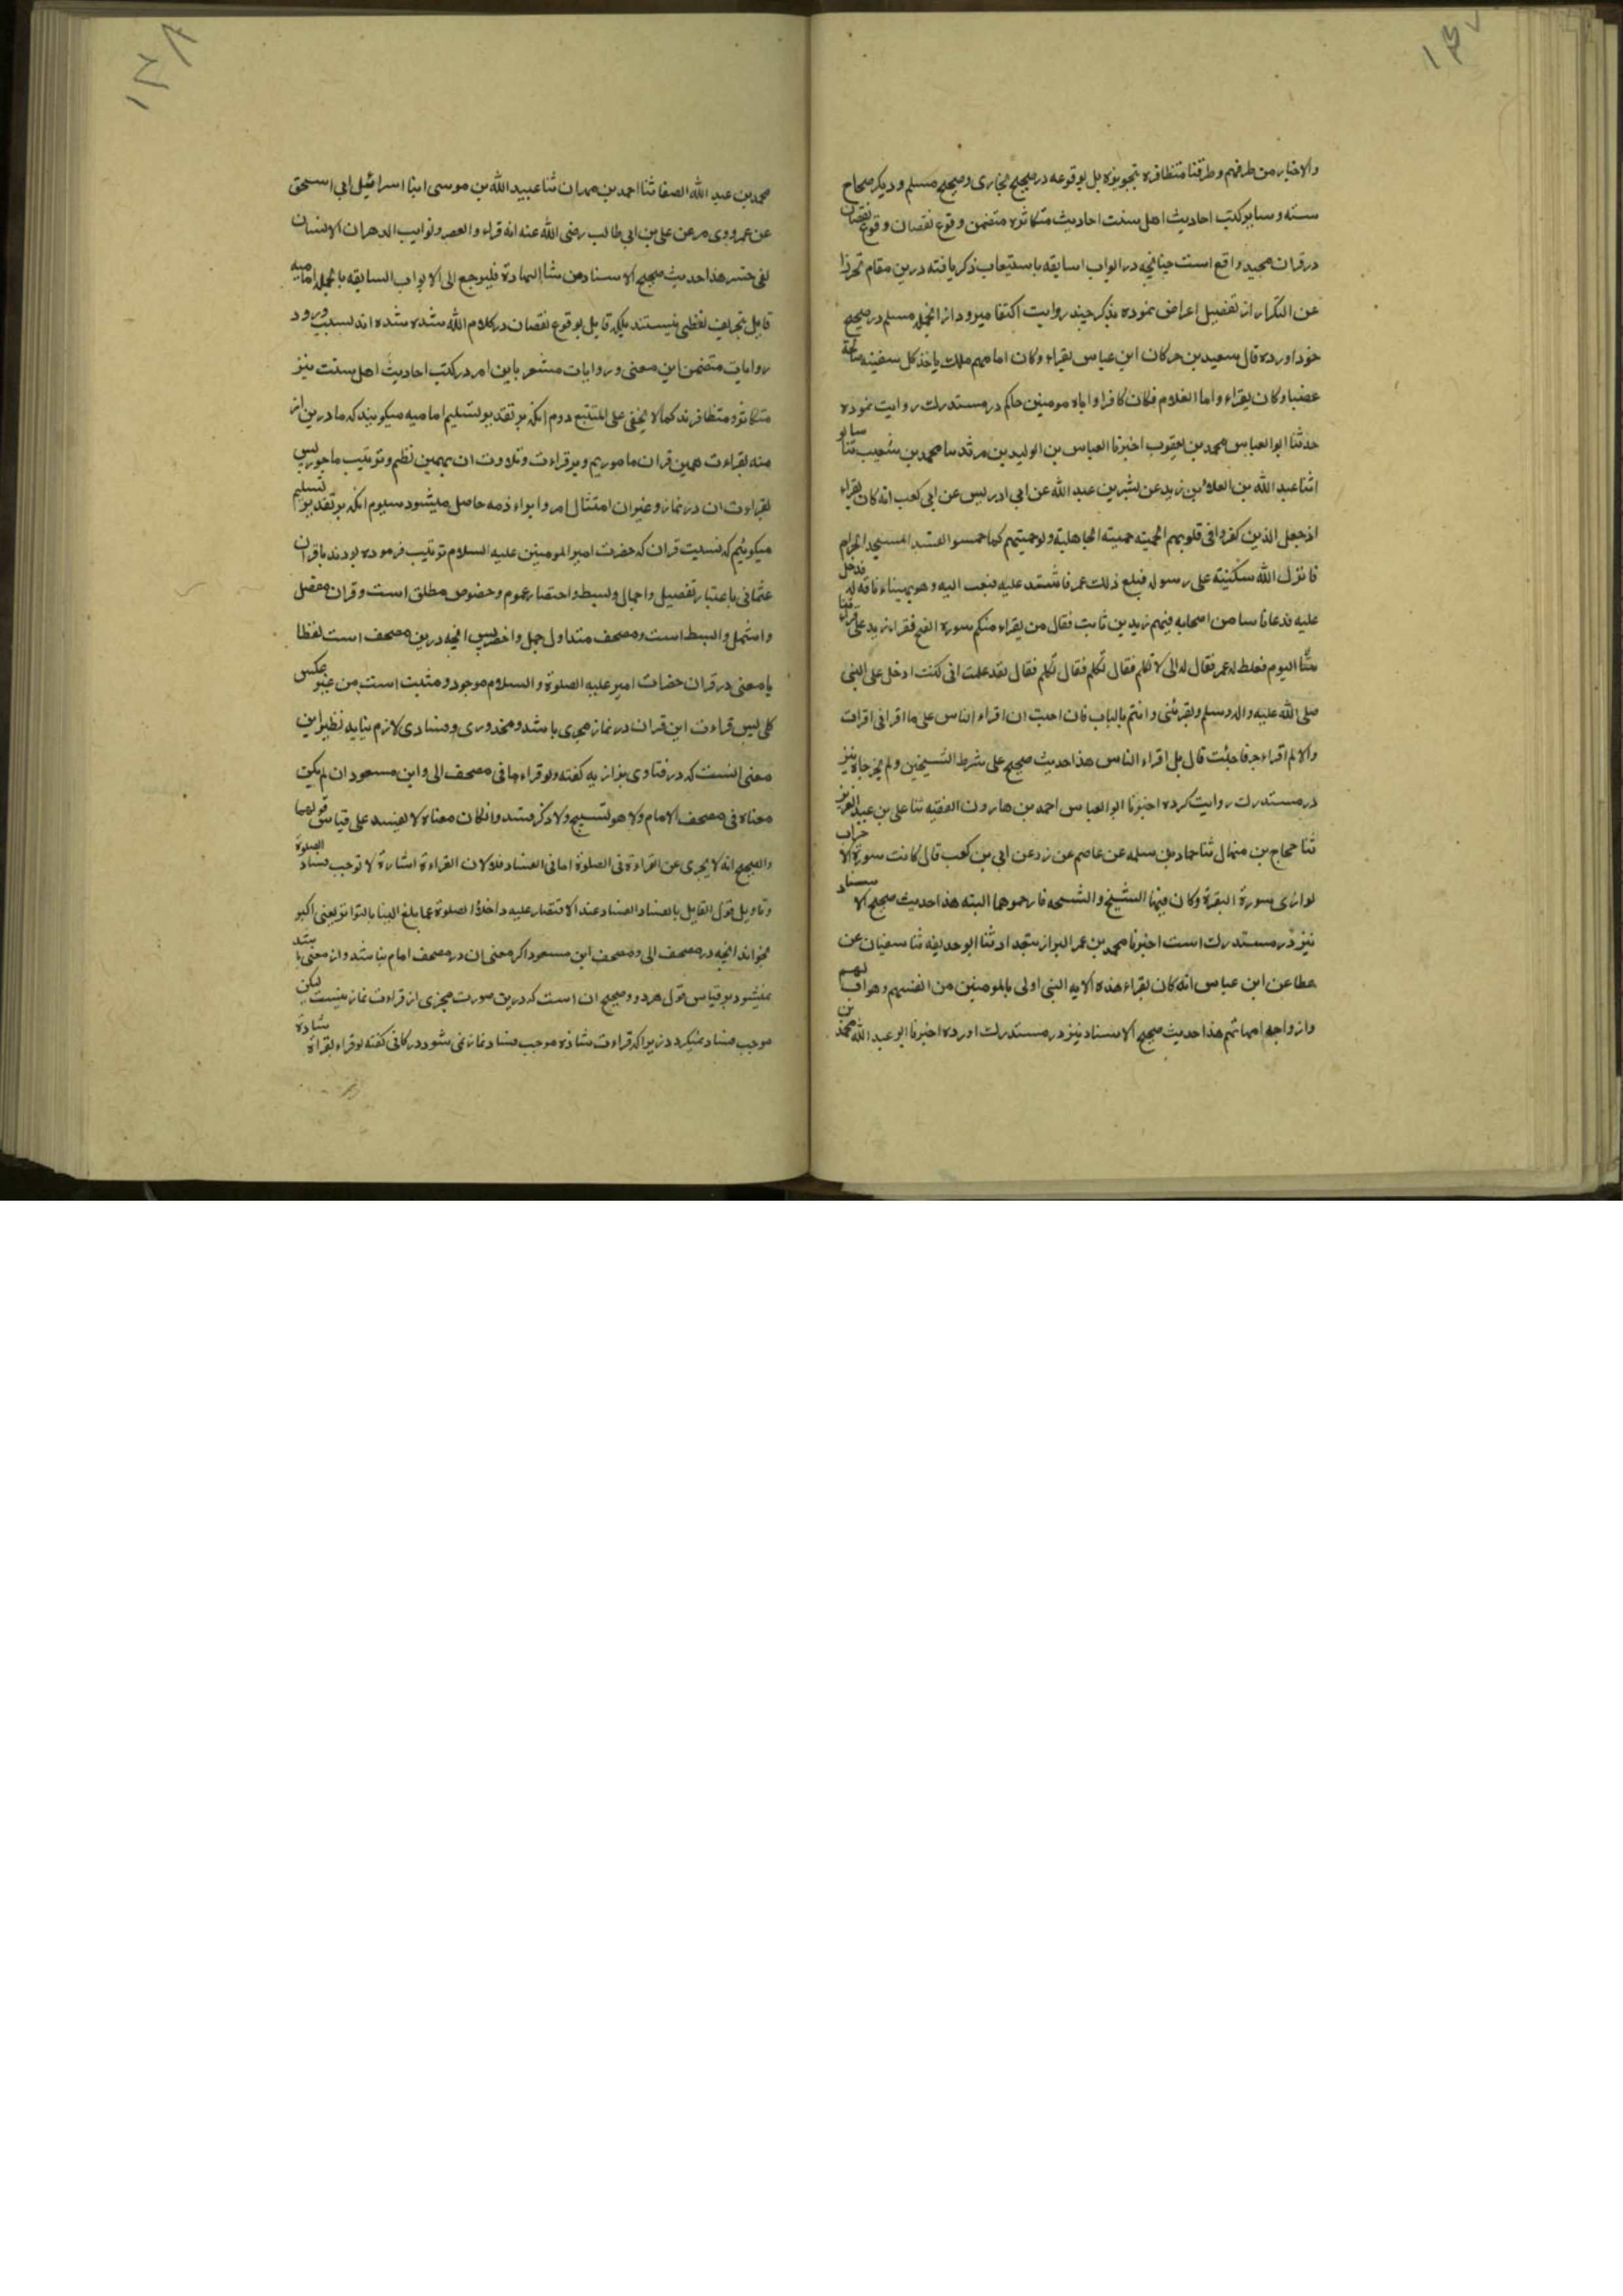 ۱۴۷
والاخبار من طرفهم وطرقنا متظافره بتجویزه بل بوقوعه در صحیح بخاری وصحیح مسلم ودیکر صحاح
سته وسایر کتب احادیث اهل سنت احادیث متکاثره متضمن وقوع نقصان و وقوع نقصان
در قران مجید واقع است چنانچه در ابواب اسابقه باستیعاب ذکر یافته درین مقام تحرزا
عن التکرار از تفصیل اعراض نموده بذکر چند روایت اکتفا میرود از انجمله مسلم در صحیح
خود اورده قال سعید بن جر کان ابن عباس یقراء وکان امامهم ملک یاخذ کل سفینه صالحة
غصبا وکان یقراء واما الغلام فکان کافرا و اباه مومنین حاکم در مستدرک روایت نموده
حدثنا ابو العباس محمد بن یعقوب اخبرنا العباس بن الولید بن مرثد سا محمد بن شعیب ثنا
اثنا عبد الله بن العلاء بن زید عن بشر بن عبد الله عن ابی ادریس عن ابی کعب انه کان یقراء
اذ جعل الذین کفروا فی قلوبهم الحمیته حمیته الجاهلیة ولو حمیتهم کما حمسوا لفسد المسجد الحرام
فانزل الله سکینته علی رسوله فبلغ ذلک عمر فاشتد علیه فبعث الیه وهو یهیناء ناقه له فدخل
علیه فدعا ناسا من اصحابه فیهم زید بن ثابت فقال من یقراء منکم سوره الفتح فقرا زید علی
الیوم فغلط له عمر فقال له ابی لا تکلم فقال تکلم فقال لقد علمت انی کنت ادخل علی النبی
صلی الله علیه واله وسلم ویقرئنی وانتم بالباب فان احببت ان اقراء الناس علی ما اقرانی اقرات
والا لم اقراء حرفا حییت قال بل اقراء الناس هذا حدیث صحیح علی شرط الشیخین ولم یخرجاه نیز
در مستدرک روایت کرده اخبرنا ابو العباس احمد بن هارون الفقیه ثنا علی بن عبد العزیز
ثنا حجاج بن منهال ثنا حماد بن سلمه عن عاصم عن زر عن ابی بن کعب قال کانت سورة الا حزاب
توازی سورة البقرة وکان فیها الشیخ والشیحه فارجموهما البته هذا حدیث صحیح الا سناد
نیز در مستدرک است اخبرنا محمد بن عمر البزاز ببغداد ثنا ابو حدیفه ثنا سفیان عن
عطا عن ابن عباس انه کان یقراء هذه الایه النبی اولی بالمومنین من انفسهم وهو اب لهم
وازواجه امهاتهم هذا حدیث صحیح الاسناد نیز در مستدرک اورده اخبرنا ابو عبد الله محمد بن
۱۴۸
محمد بن عبد الله الصفا ثنا احمد بن مهران ثنا عبید الله بن موسی ابنا اسرائیل ابی اسحق
عن عمرو وی مر عن علی بن ابی طالب رضی الله عنه انه قراء والعصر ونوایب الدهر ان الانسان
لفی خسر هذا حدیث صحیح الاسناد من شاالیهادة فلیرجع الی الابواب السابقه بالجمله امامیه
قایل بتحریف لفظی نیستند بلکه قایل بوقوع نقصان در کلام الله شده شده اند بسبب ورود
روایات متضمن این معنی وروایات مشعر باین امر در کتب احادیث اهل سنت نیز
متکاثر ومتظافرند کما لا یخفی علی المتتبع دوم انکه بر تقدیر تسلیم امامیه میکویند که ما درین از
منه بقراءت همین قران ماموریم وبر قراءت وتلاوت ان بهمین نظم وترتیب ماجور پس
بقراءت ان در نماز وغیر ان امتثال امر وابراء ذمه حاصل میشود سیوم انکه بر تقدیر تسلیم
میکوئیم که نسبت قران که حضرت امیر المومنین علیه السلام ترتیب فرموده بودند باقران
عثمانی باعتبار تفصیل واجمال وبسط واختصار عموم وخصوص مطلق است وقران مفصل
واشمل وابسط است ومصحف متداول جمل واخصر پس انچه درین مصحف است لفظا
یا معنی در قران حضات امیر علیه الصلوة والسلام موجود ومثبت است من غیر عکس
کلی پس قراءت این قران در نماز مجزی باشد ومحذوری وفسادی لازم نیاید نظیر این
معنی انست که در فتاوی بزازیه کفته ولو قراء ما فی مصحف ابی وابن مسعود ان لم یکن
معناه فی مصحف الامام ولا هو تسبیح ولا ذکر فسد وانکان معناه لا یفسد علی قیاس قولهما
والصحیح انه لا یجزی عن القراءة فی الصلوة اما فی الفساد فلا لان القراءة الشاذة لا توجب فساد الصلوة
وتاویل قول القایل بالفساد الفساد عند الاقتصار علیه داخلة الصلوة عما بلغ الینا بالتواتر یعنی اکبر
بخواند انچه در مصحف ابی ومصحف ابن مسعود اکر معنی ان در مصحف امام نباشد وان معنی باشد
نمیشود بر قیاس قول هر دو وصحیح ان است که درین صورت مجزی از قراءت نماز نیست لیکن
موجب فساد نمیکردد زیرا که قراءت شاذه موجب فساد نماز نمی شود در کافی کفته لو قراء بقراءة شاذة